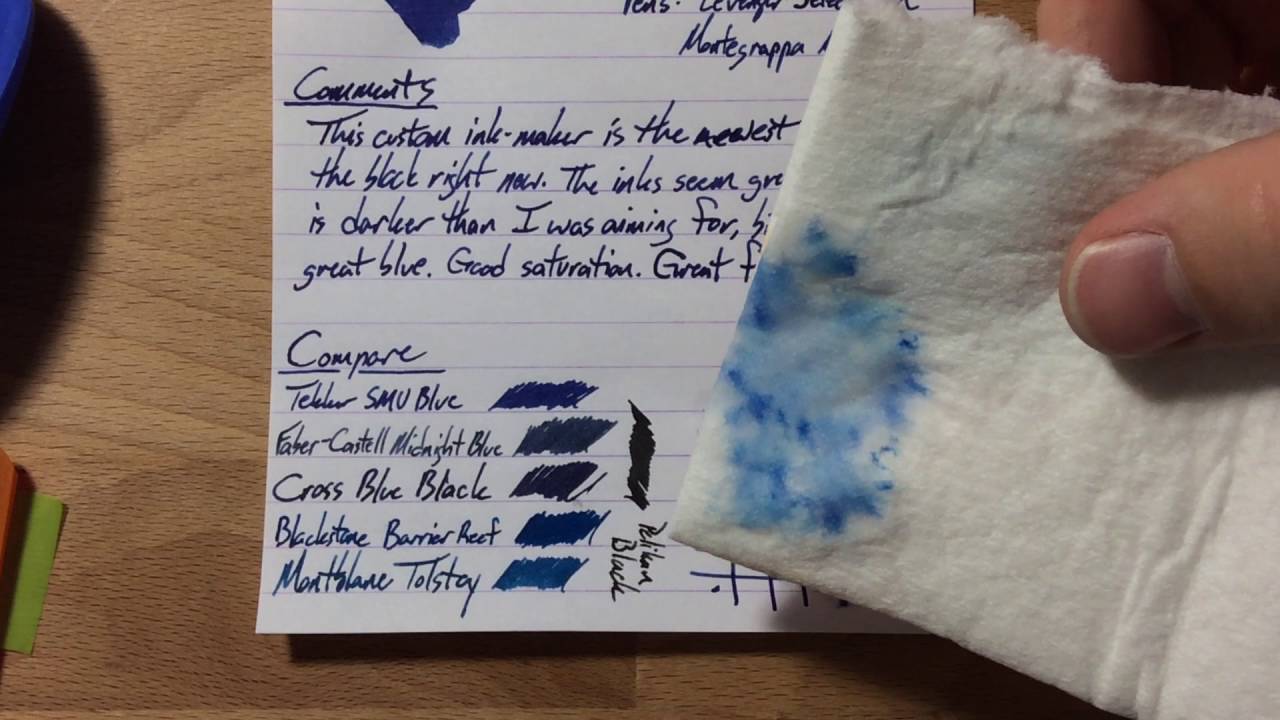 Pens: Levenger
Montegrappa
Comments
This custom ink-maker is the newest
the block right now. The inks seem gre
is darker than I was aiming for,
great blue. Good saturation. Great f
Compare
Tekker SMU Blue
Faber-Castell Midnight Blue
Cross Blue Black
Blackstone Barrier Reef
Montblanc Tolstoy
Pelikan
Black